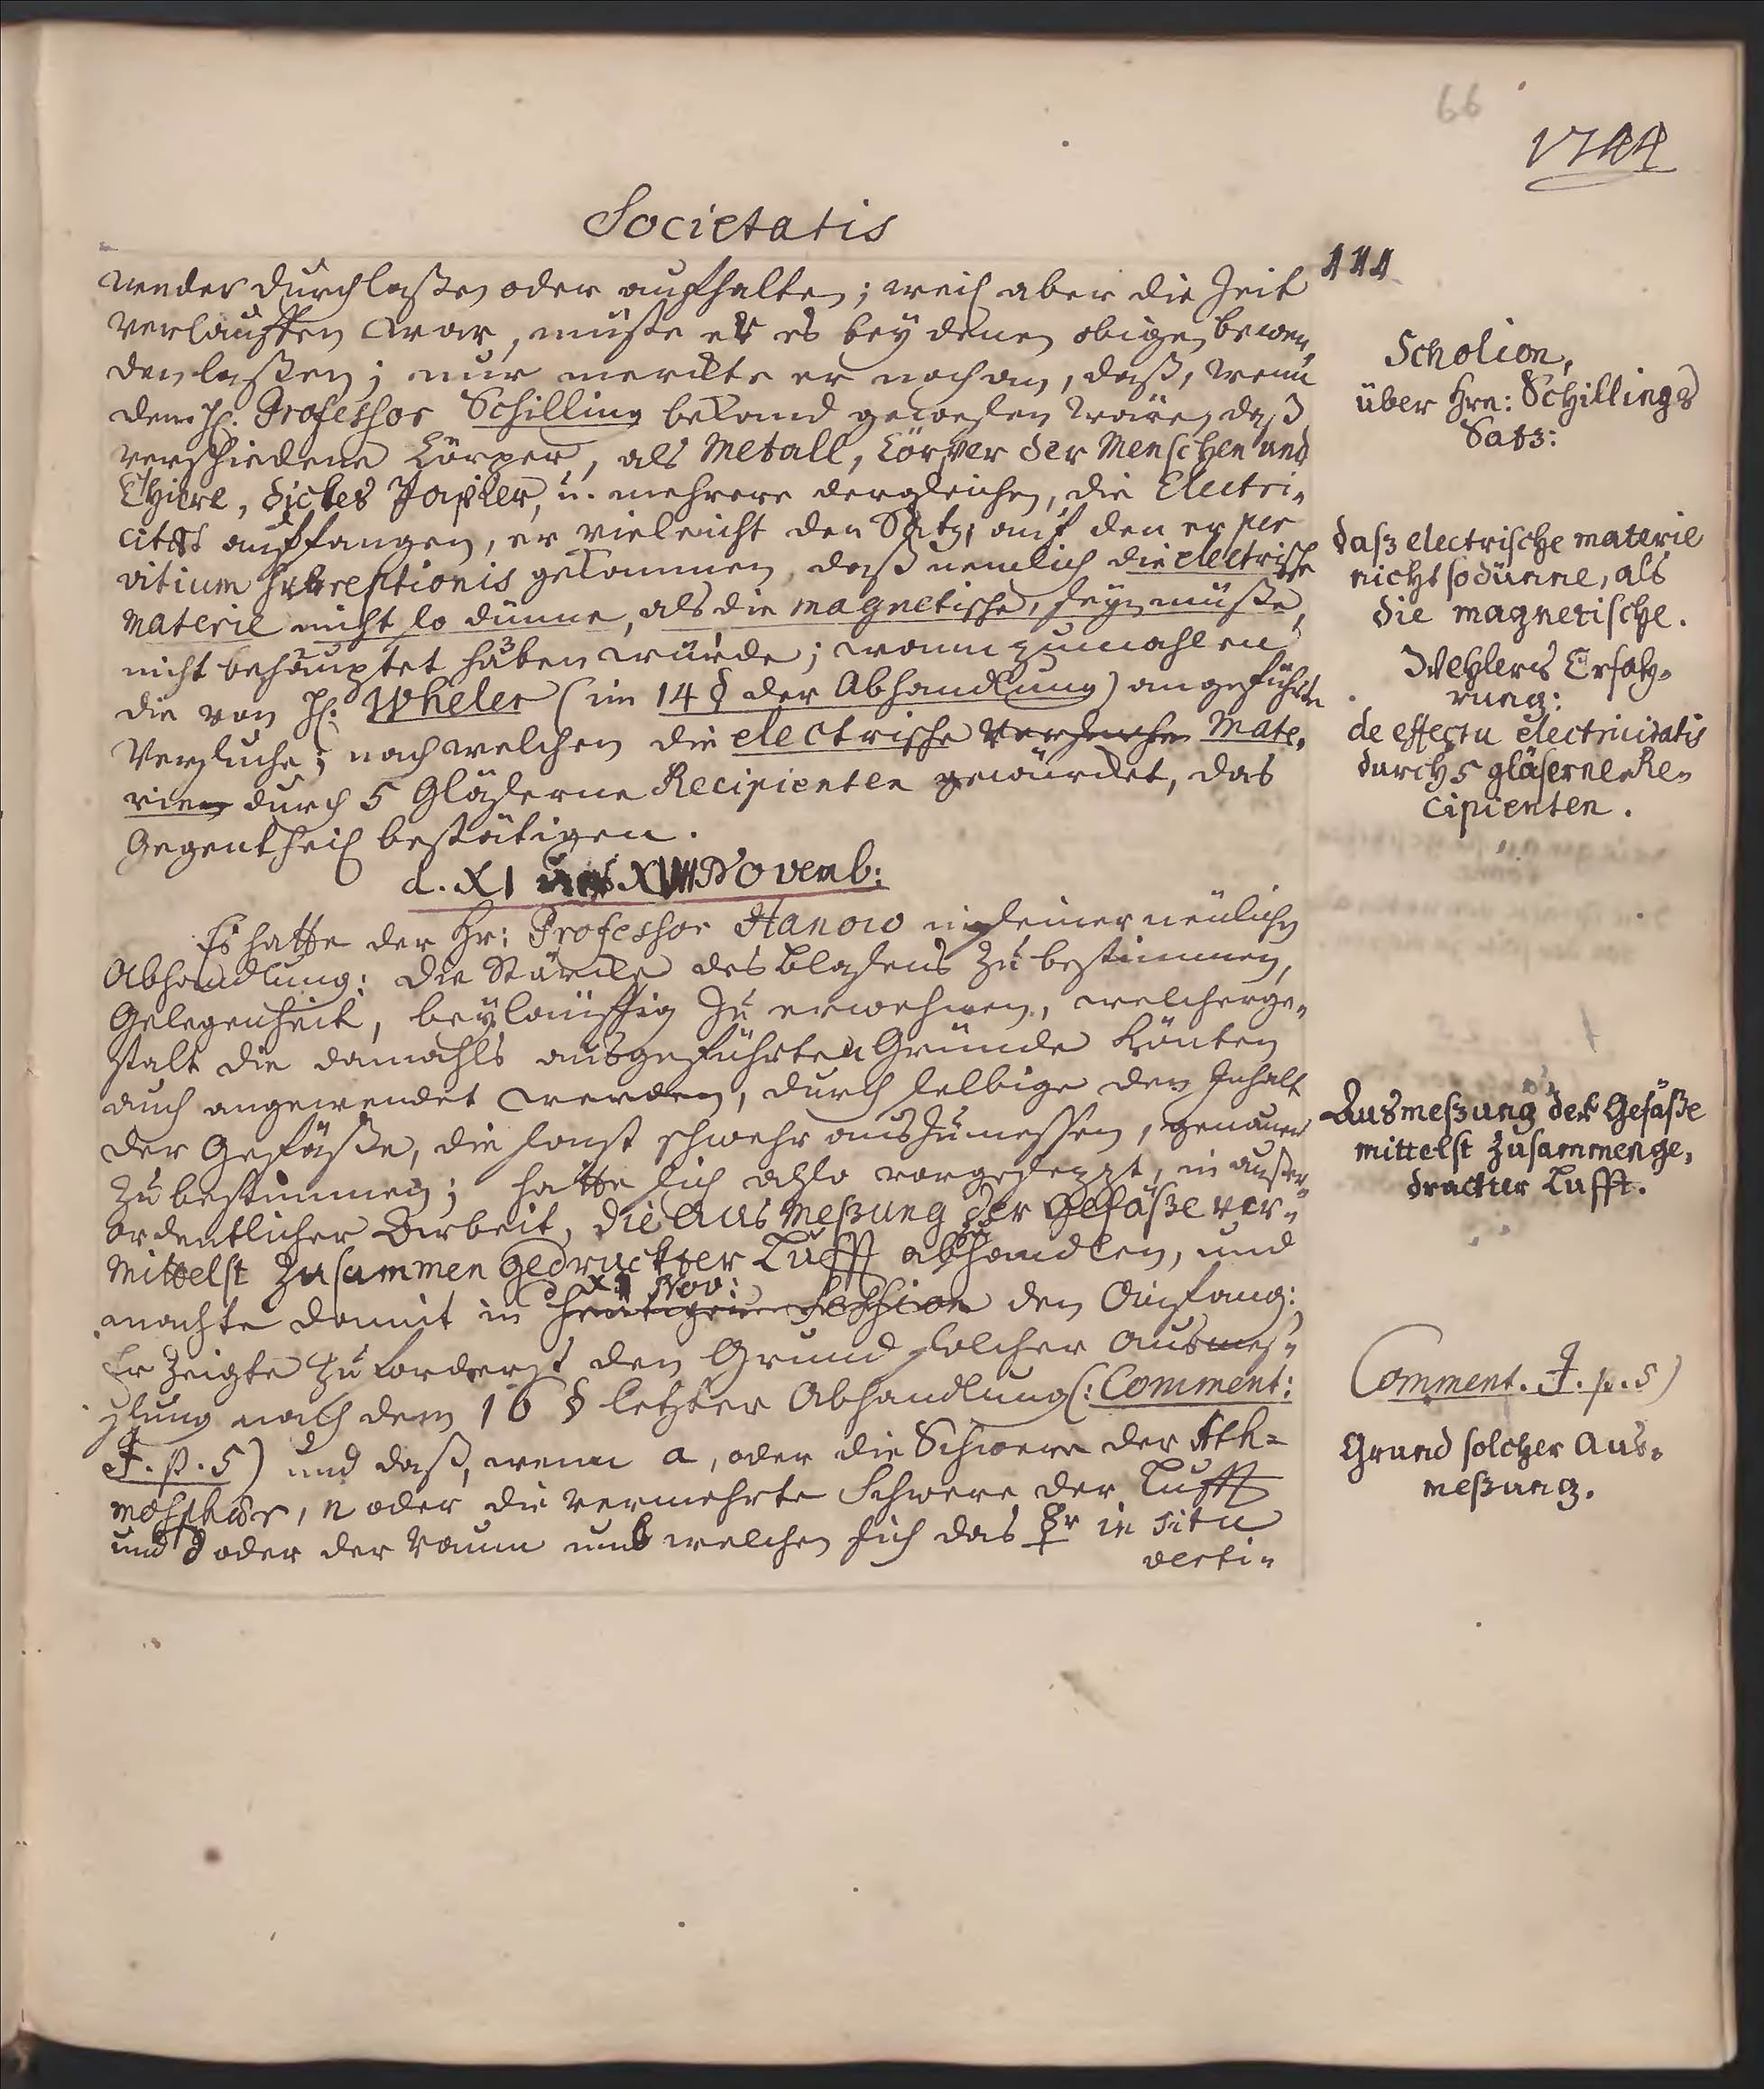 66
1744
Societatis
444
weder durchlaßen oder aufhalten; weil aber die Zeit
verlauffen war, muste er es bey denen obigen bewen„
den laßen; nur merckte er noch an, daß, wenn
dem H. Professor Schilling bekand gewesen wäre, daß
verschiedene Körper, als Metall, Körper der Menschen und
Thiere, dickes Papier, u. mehrere dergleichen, die Electri„
citæt auffangen, er vieleicht den Satz, auf den er per
vitium subreptionis gekommen, daß nemlich die electrische
materie nicht so dünne, als die magnetische, seyn müste,
nicht behauptet haben würde; wann zumahlen
die von H. Wheler (im 14 § der Abhandlung) angeführte
Versuche; nach welchen die electrische Versuche Mate„
rien durch 5 Gläserne Recipienten gewürcket, das
Gegentheil bestätigen.
d. XI und XVIII Novemb:
Es hatte der Hr: Professor Hanow in seiner neulichen
Abhandlung: die Stärcke des Blasens zu bestimmen,
Gelegenheit, beyläuffig zu erwehnen, welcherge„
stalt die damahls ausgeführten Gründe könten
auch angewendet werden, durch selbige den Inhalt
der Gefäße, die sonst schwehr auszumessen, genauer
zu bestimmen; hatte sich also vorgesezzt, in außer„
ordentlicher Arbeit, die Ausmeßung der Gefäße ver„
mittelst zusammen gedruckter Lufft abhandlen, und
d XI Nov:
machte damit in heutigen Session den Anfang:
Er zeigte zuforderst den Grund solcher Ausmes„
sung nach dem 16 § letzter Abhandlung (: Comment:
I. p. 5) und daß, wenn a, oder die Schwere der Ath=
mosphær, n oder die vermehrte Schwere der Lufft
und d oder der Raum um welchen sich das ☿r in situ
verti„
Scholion,
über Hrn: Schillings
Satz:
daß electrische materie
nicht so dünne, als
die magnetische.
Wehlers Erfah„
rung:
de effectu electricitatis
durch 5 gläserne Re„
cipienten.
Ausmeßung der Gefäße
mittelst zusammenge„
druckter Lufft.
Comment. I. p. 5)
Grund solcher Aus„
meßung.